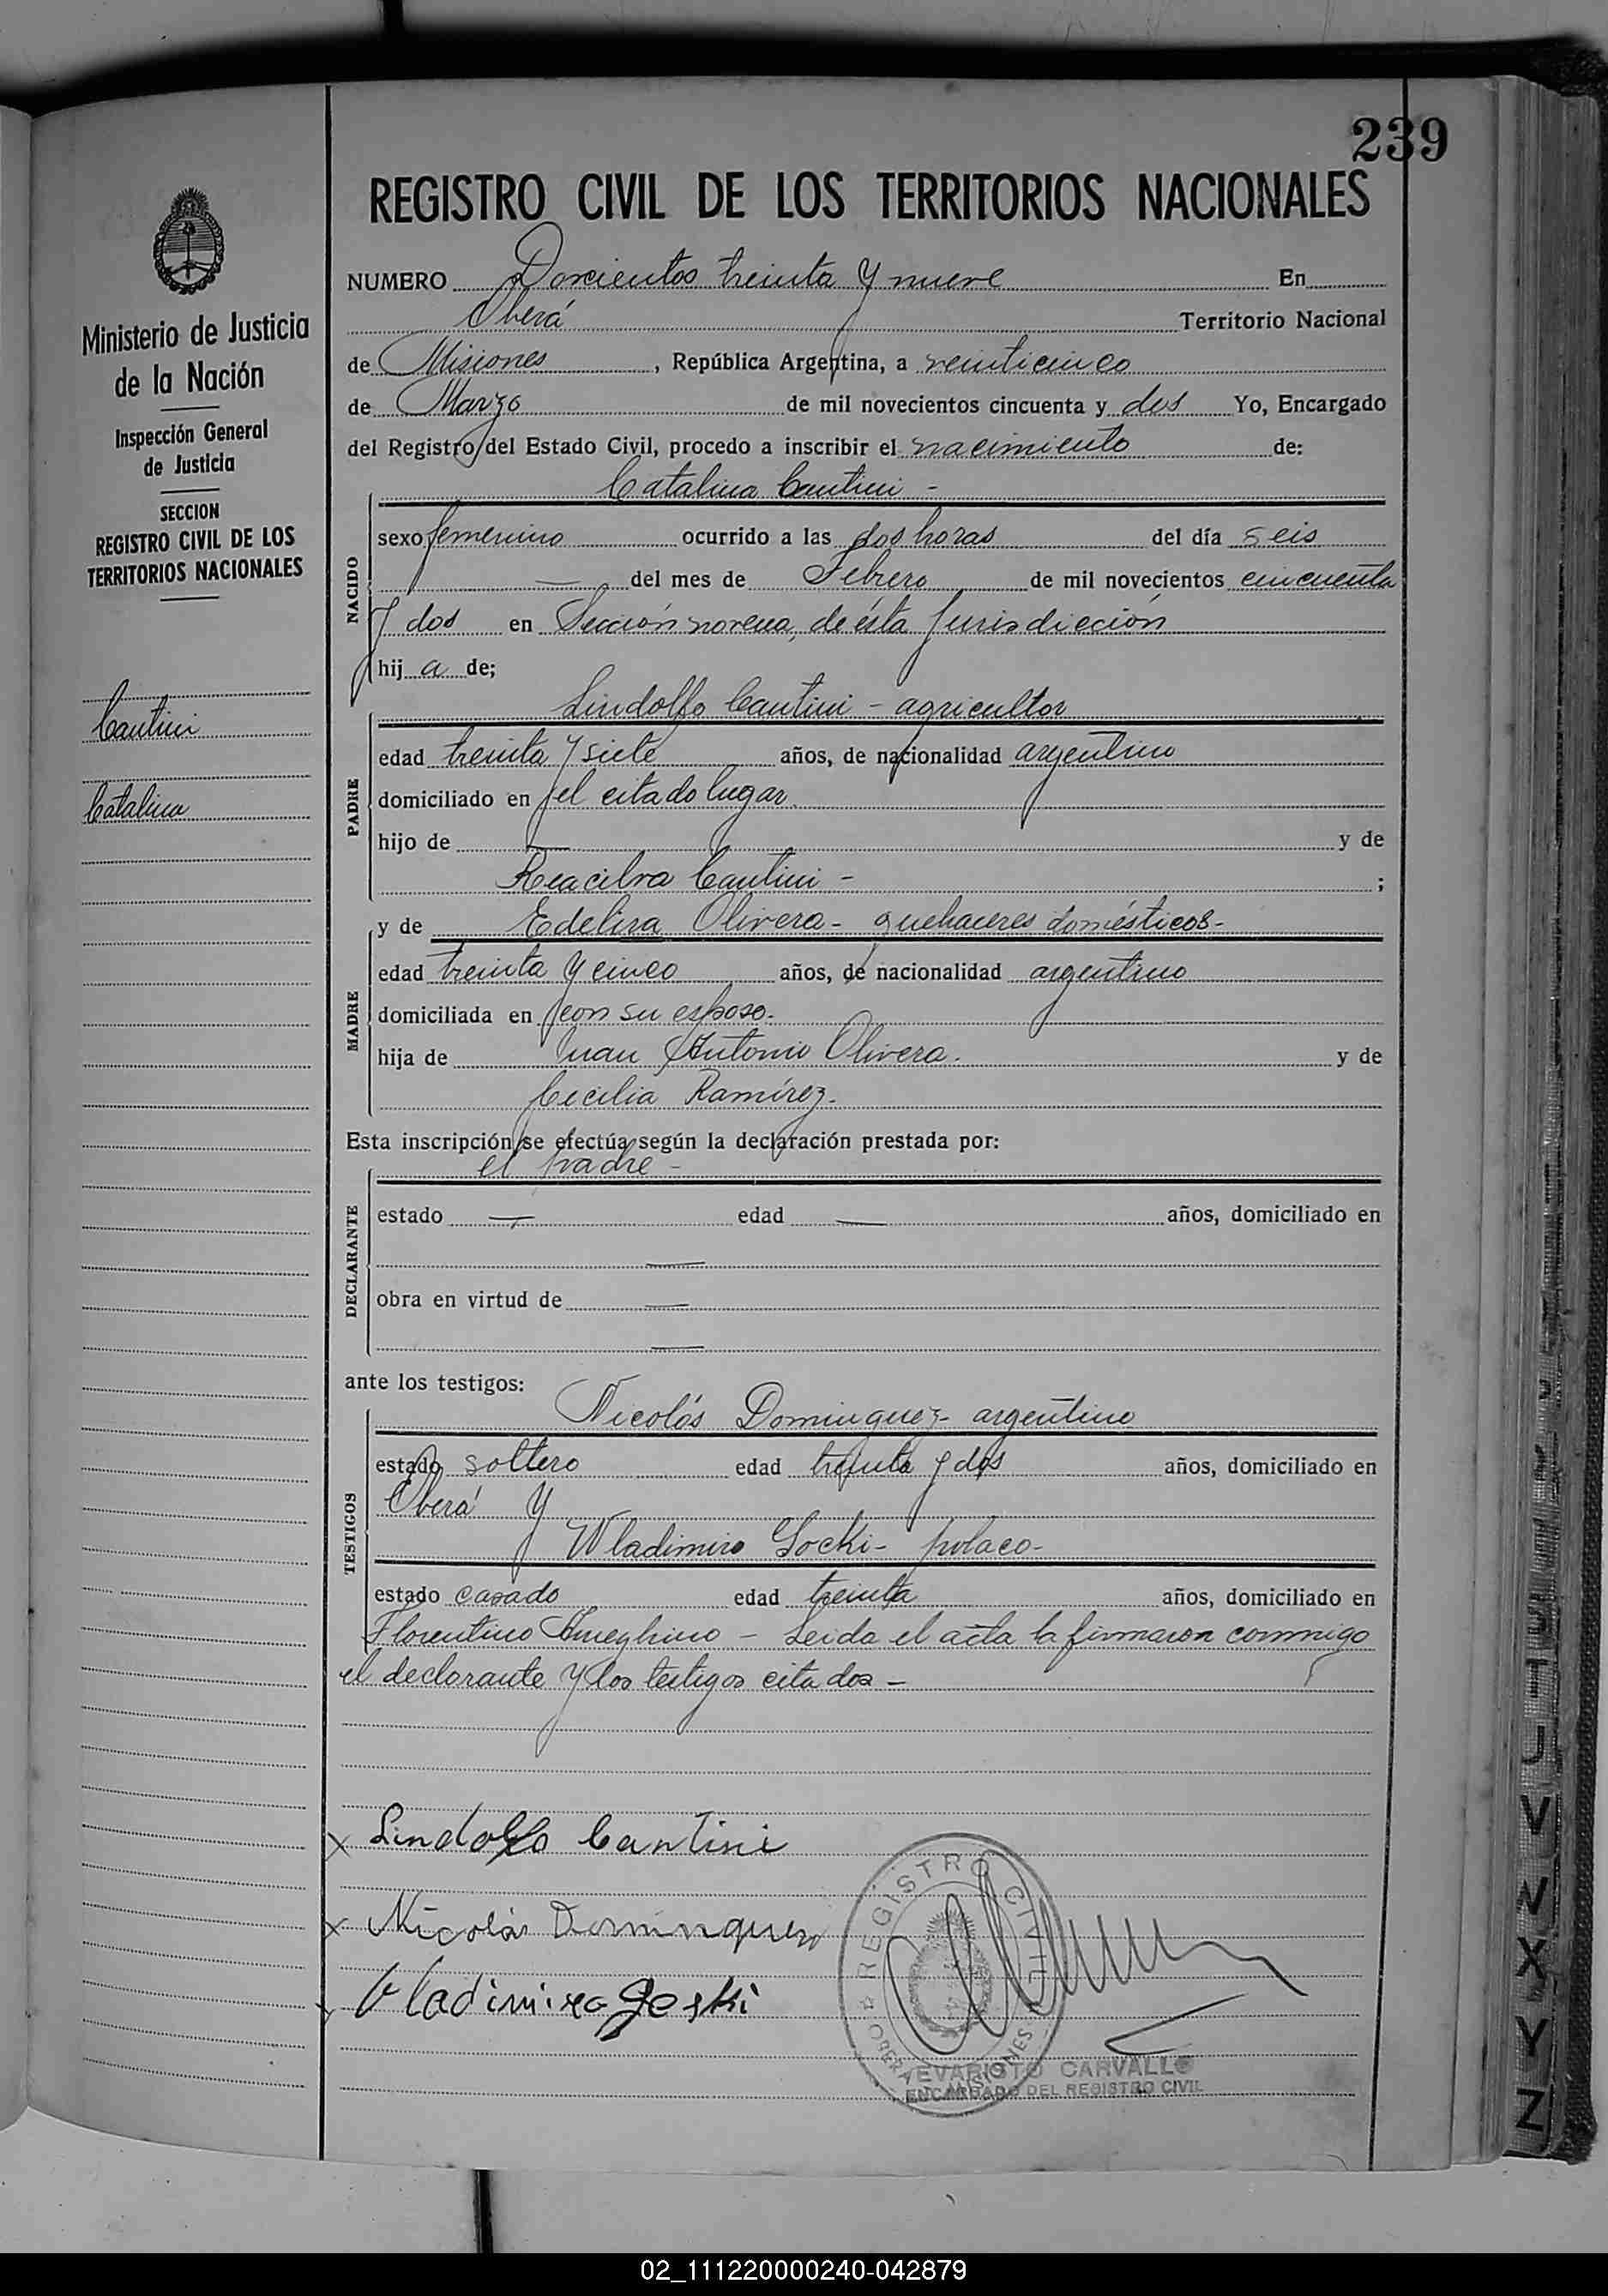 239
REGISTRO CIVIL DE LOS TERRITORIOS NACIONALES
Ministerio de Justicia
de la Nación
Inspección General
de Justicia
SECCION
REGISTRO CIVIL DE LOS
TERRITORIOS NACIONALES
Cantini
Catalina
NUMERO Doscientos treinta y nueve En
Oberá Territorio Nacional
de Misiones, República Argentina, a veinticinco
de Marzo de mil novecientos cincuenta y dos Yo, Encargado
del Registro del Estado Civil, procedo a inscribir el nacimiento de:
Catalina Cantini -
NACIDO
sexo femenino ocurrido a las dos horas del día seis
— del mes de Febrero de mil novecientos cincuenta
y dos en Sección novena, de ésta Jurisdicción
hij a de;
Lindolfo Cantini - agricultor
PADRE
edad treinta y siete años, de nacionalidad argentino
domiciliado en el citado lugar.
hijo de — y de
Cantini - ;
y de Edelira Olivera - quehaceres domésticos-
MADRE
edad treinta y cinco años, de nacionalidad argentino
domiciliada en con su esposo.
hija de Juan Antonio Olivera. y de
Cecilia Ramírez.
Esta inscripción se efectúa según la declaración prestada por:
el padre -
DECLARANTE
estado — edad — años, domiciliado en
—
obra en virtud de —
—
ante los testigos:
Nicolás Dominguez - argentino
TESTIGOS
estado soltero edad treinta y dos años, domiciliado en
Oberá y
Wladimiro Gocki - polaco -
estado casado edad treinta años, domiciliado en
Florentino Ameghino - Leida el acta la firmaron conmigo
el declarante y los testigos citados -
x Lindolfo Cantini
x Nicolás Dominguez
Vladimiro
REGISTRO CIVIL
OBERA MISIONES
EVARISTO CARVALLO
ENCARGADO DEL REGISTRO CIVIL
U T J V N X Y Z
02_111220000240-042879